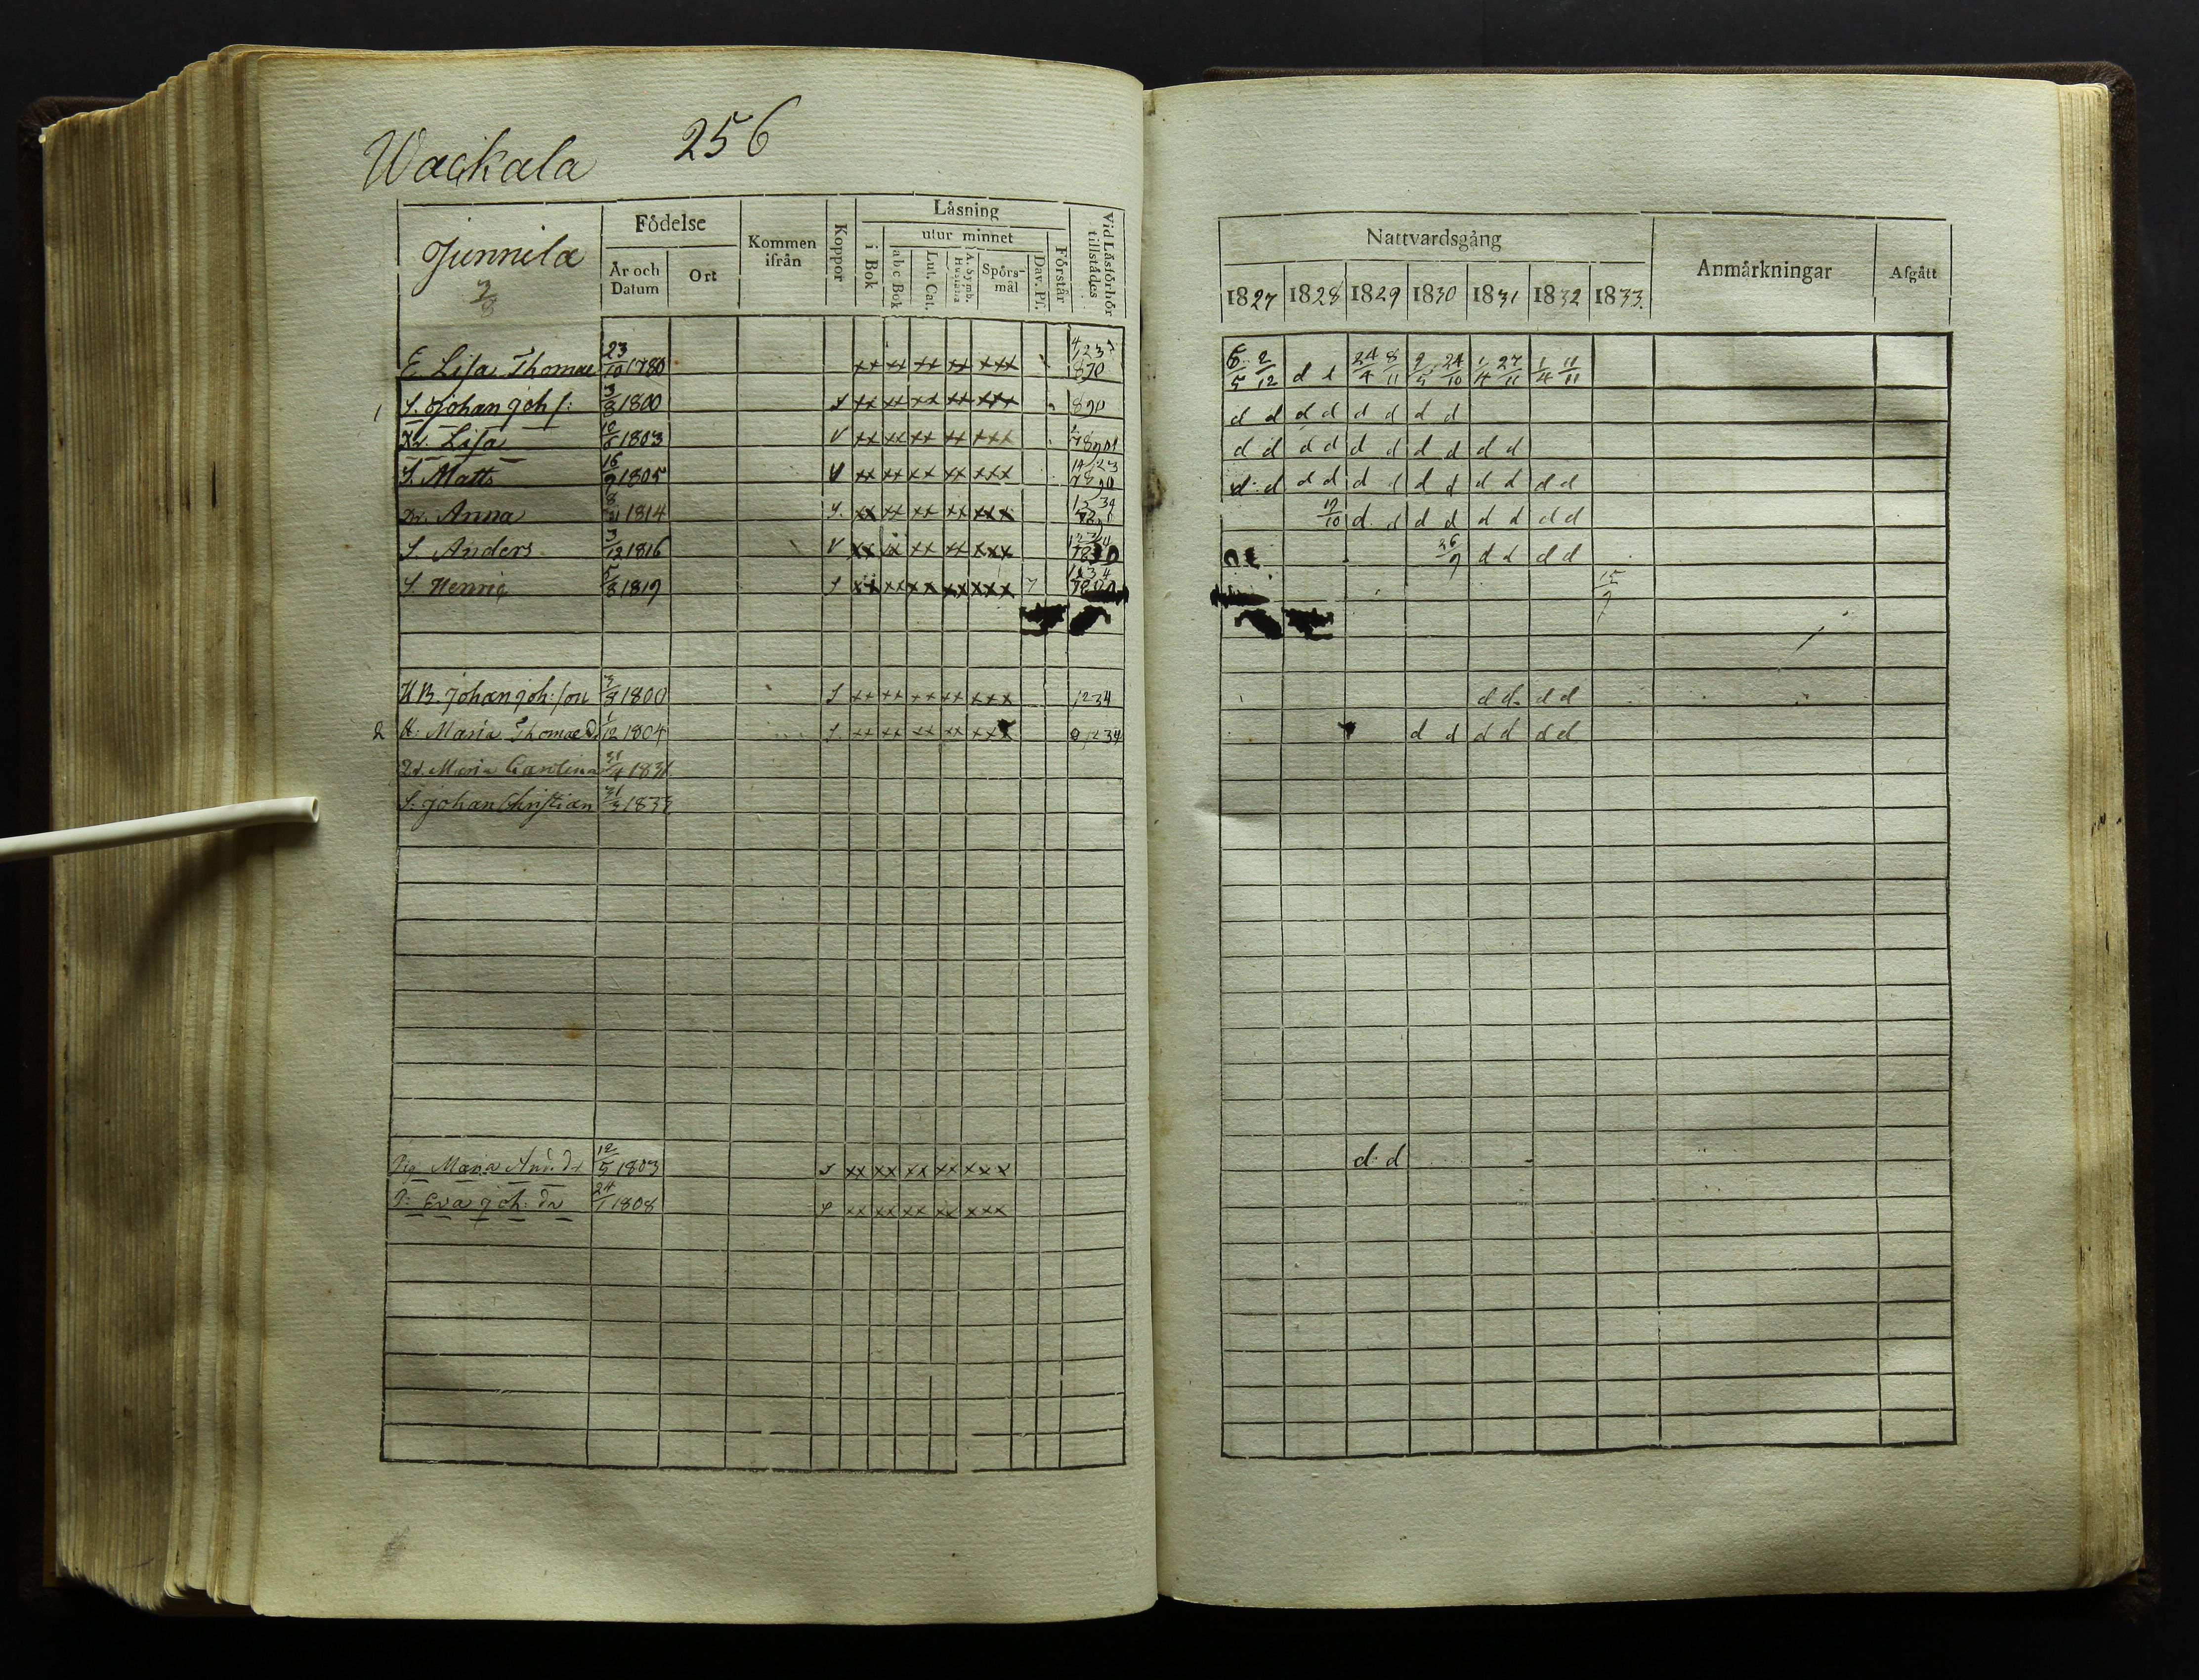 Wackala 256
Junnila
3/8
Födelse
År och Datum
Ort
Kommen ifrån
Koppor
Läsning
i Bok
utur minnet
abc Bok
Lut. Cat.
A. Symb. Hustafla
Spörs-mål
Dav. Ps.
Förstår
Vid Läsförhör tillstädes
E. Lisa Thomae 23/10 1780 xx xx xx xx xxx
1 S. Johan Joh s: 3/8 1800 S xx xx xx xx xxx 890
Dr. Lisa 1803 V xx xx xx xx xxx
S. Matts 16/9 1805 V xx xx xx xx xxx
Dr. Anna 1814 S. xx xx xx xx xxx
S. Anders 3/12 1816 V xx xx xx xx xxx
S. Henric 5/8 1819 S xx xx xx xx xxx 7
H B. Johan Joh:son 3/8 1800 S xx xx xx xx xxx 1234
2 H: Maria Thomae D. 1/12 1804 S. xx xx xx xx xxx 01234
Dr. Maria Carolina 1831
S: Johan Christian 31/3 1833
Pig Maria And. dr 12/5 1803 S xx xx xx xx xxx
P: Eva Joh: dr 24/1 1808 S xx xx xx xx xxx
Nattvardsgång
Anmärkningar
Afgått
1827 1828 1829 1830 1831 1832 1833.
6/5 2/12 d d 24/4 8/11 2/5 24/10 1/4 27/11 1/4 11/11
d d d d d d d d
d d d d d d d d d d
d d d d d d d d d d d d
19/10 d d d d d d d d
26/9 d d d d
15/9
d d d d
d d d d d d
d d